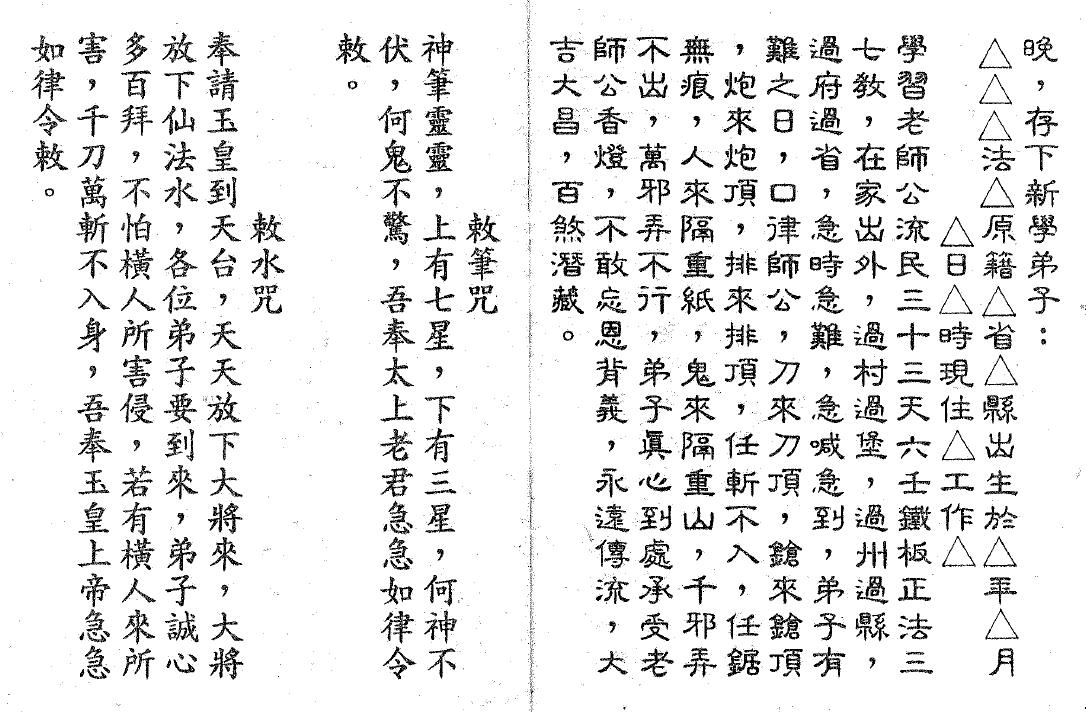 晚，存下新學弟子：
△△△法△原籍△省△縣出生於△年△月
△日△時現住△工作△
學習老師公流民三十三天六壬鐵板正法三
七教，在家出外，過村過堡，過州過縣，
過府過省，急時急難，急喊急到，弟子有
難之日，口律師公，刀來刀頂，鎗來鎗頂
，炮來炮頂，排來排頂，任斬不入，任鋸
無痕，人來隔重紙，鬼來隔重山，千邪弄
不出，萬邪弄不行，弟子眞心到處承受老
師公香燈，不敢忘恩背義，永遠傳流，大
吉大昌，百煞潛藏。
敕筆咒
神筆靈靈，上有七星，下有三星，何神不
伏，何鬼不驚，吾奉太上老君急急如律令
敕。
敕水咒
奉請玉皇到天台，天天放下大將來，大將
放下仙法水，各位弟子要到來，弟子誠心
多百拜，不怕橫人所害侵，若有橫人來所
害，千刀萬斬不入身，吾奉玉皇上帝急急
如律令敕。